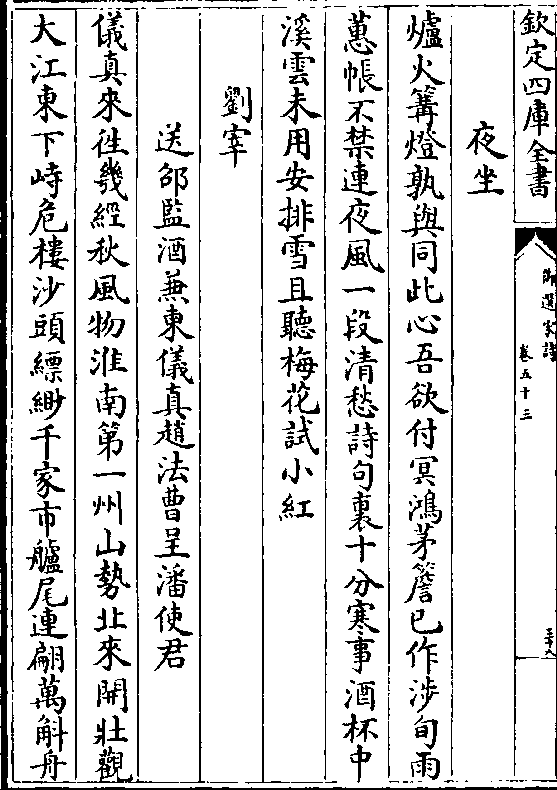 欽定四庫全書
御選宋詩
卷五十三
三十八
夜坐
爐火篝燈孰與同此心吾欲付冥鴻茅簷已作涉旬雨
蕙帳不禁連夜風一段清愁詩句裏十分寒事酒杯中
溪雲未用安排雪且聽梅花試小紅
劉宰
送邵監酒兼柬儀真趙法曹呈潘使君
儀真來徃幾經秋風物淮南第一州山勢北來開壯觀
大江東下峙危樓沙頭縹緲千家市艫尾連翩萬斛舟